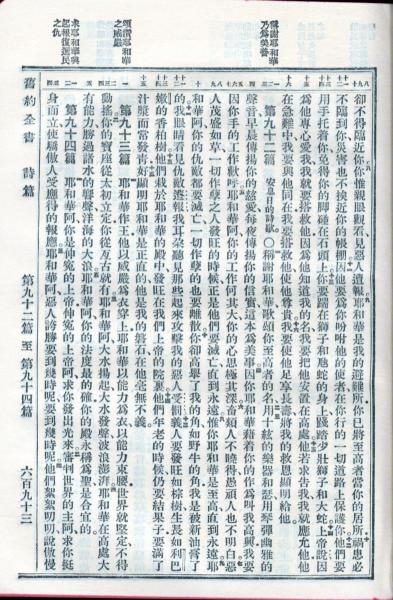 稱謝耶和華
乃爲美善
頌讚耶和華
之威嚴
求耶和華興
起報復選民
之仇
卻不得臨近你你惟親眼觀看見惡人遭報耶和華是我的避難所你已將至高者當你的居所禍患必
不臨到你災害也不挨近你的帳棚因他要爲你吩咐他的使者在你行的一切道路上保護你他們要
用手托着你免得你的腳碰在石頭上你要踹在獅子和虺蛇的身上踐踏少壯獅子和大蛇上帝說因
他專心愛我我就要搭救他因爲他知道我的名我要把他安置在高處他若求告我我就應允他他
在急難中我要與他同在我要搭救他使他尊貴我要使他足享長壽將我的救恩顯明給他
第九十二篇 安息日的詩歌 ○稱謝耶和華歌頌你至高者的名用十絃的樂器和瑟用琴彈幽雅的
聲音早晨傳揚你的慈愛每夜傳揚你的信實這本爲美事因你耶和華藉着你的作爲叫我高興我要
因你手的工作歡呼耶和華阿你的工作何其大你的心思極其深畜類人不曉得愚頑人也不明白惡
人茂盛如草一切作孽之人發旺的時候正是他們要滅亡直到永遠惟你耶和華是至高直到永遠耶
和華阿你的仇敵都要滅亡一切作孽的也要離散你卻高舉了我的角如野牛的角我是被新油膏了
的我眼睛看見仇敵遭報我耳朵聽見那些起來攻擊我的惡人受罰義人要發旺如棕樹生長如利巴
嫩的香柏樹他們栽於耶和華的殿中發旺在我們上帝的院裏他們年老的時候仍要結果子要滿了
汁漿而常發青好顯明耶和華是正直的他是我的磐石在他毫無不義
第九十三篇 耶和華作王他以威嚴爲衣穿上耶和華以能力爲衣以能力束腰世界就堅定不得
動搖你的寶座從太初立定你從亙古就有耶和華阿大水揚起大水發聲波浪澎湃耶和華在高處大
有能力勝過諸水的響聲洋海的大浪耶和華阿你的法度最的確你的殿永稱爲聖是合宜的
第九十四篇 耶和華阿你是伸冤的上帝伸冤的上帝阿求你發出光來審判世界的主阿求你挺
身而立使驕傲人受應得的報應耶和華阿惡人誇勝要到幾時呢要到幾時呢他們絮絮叨叨說傲慢
舊約全書 詩篇 第九十二篇至第九十四篇 六百九十三